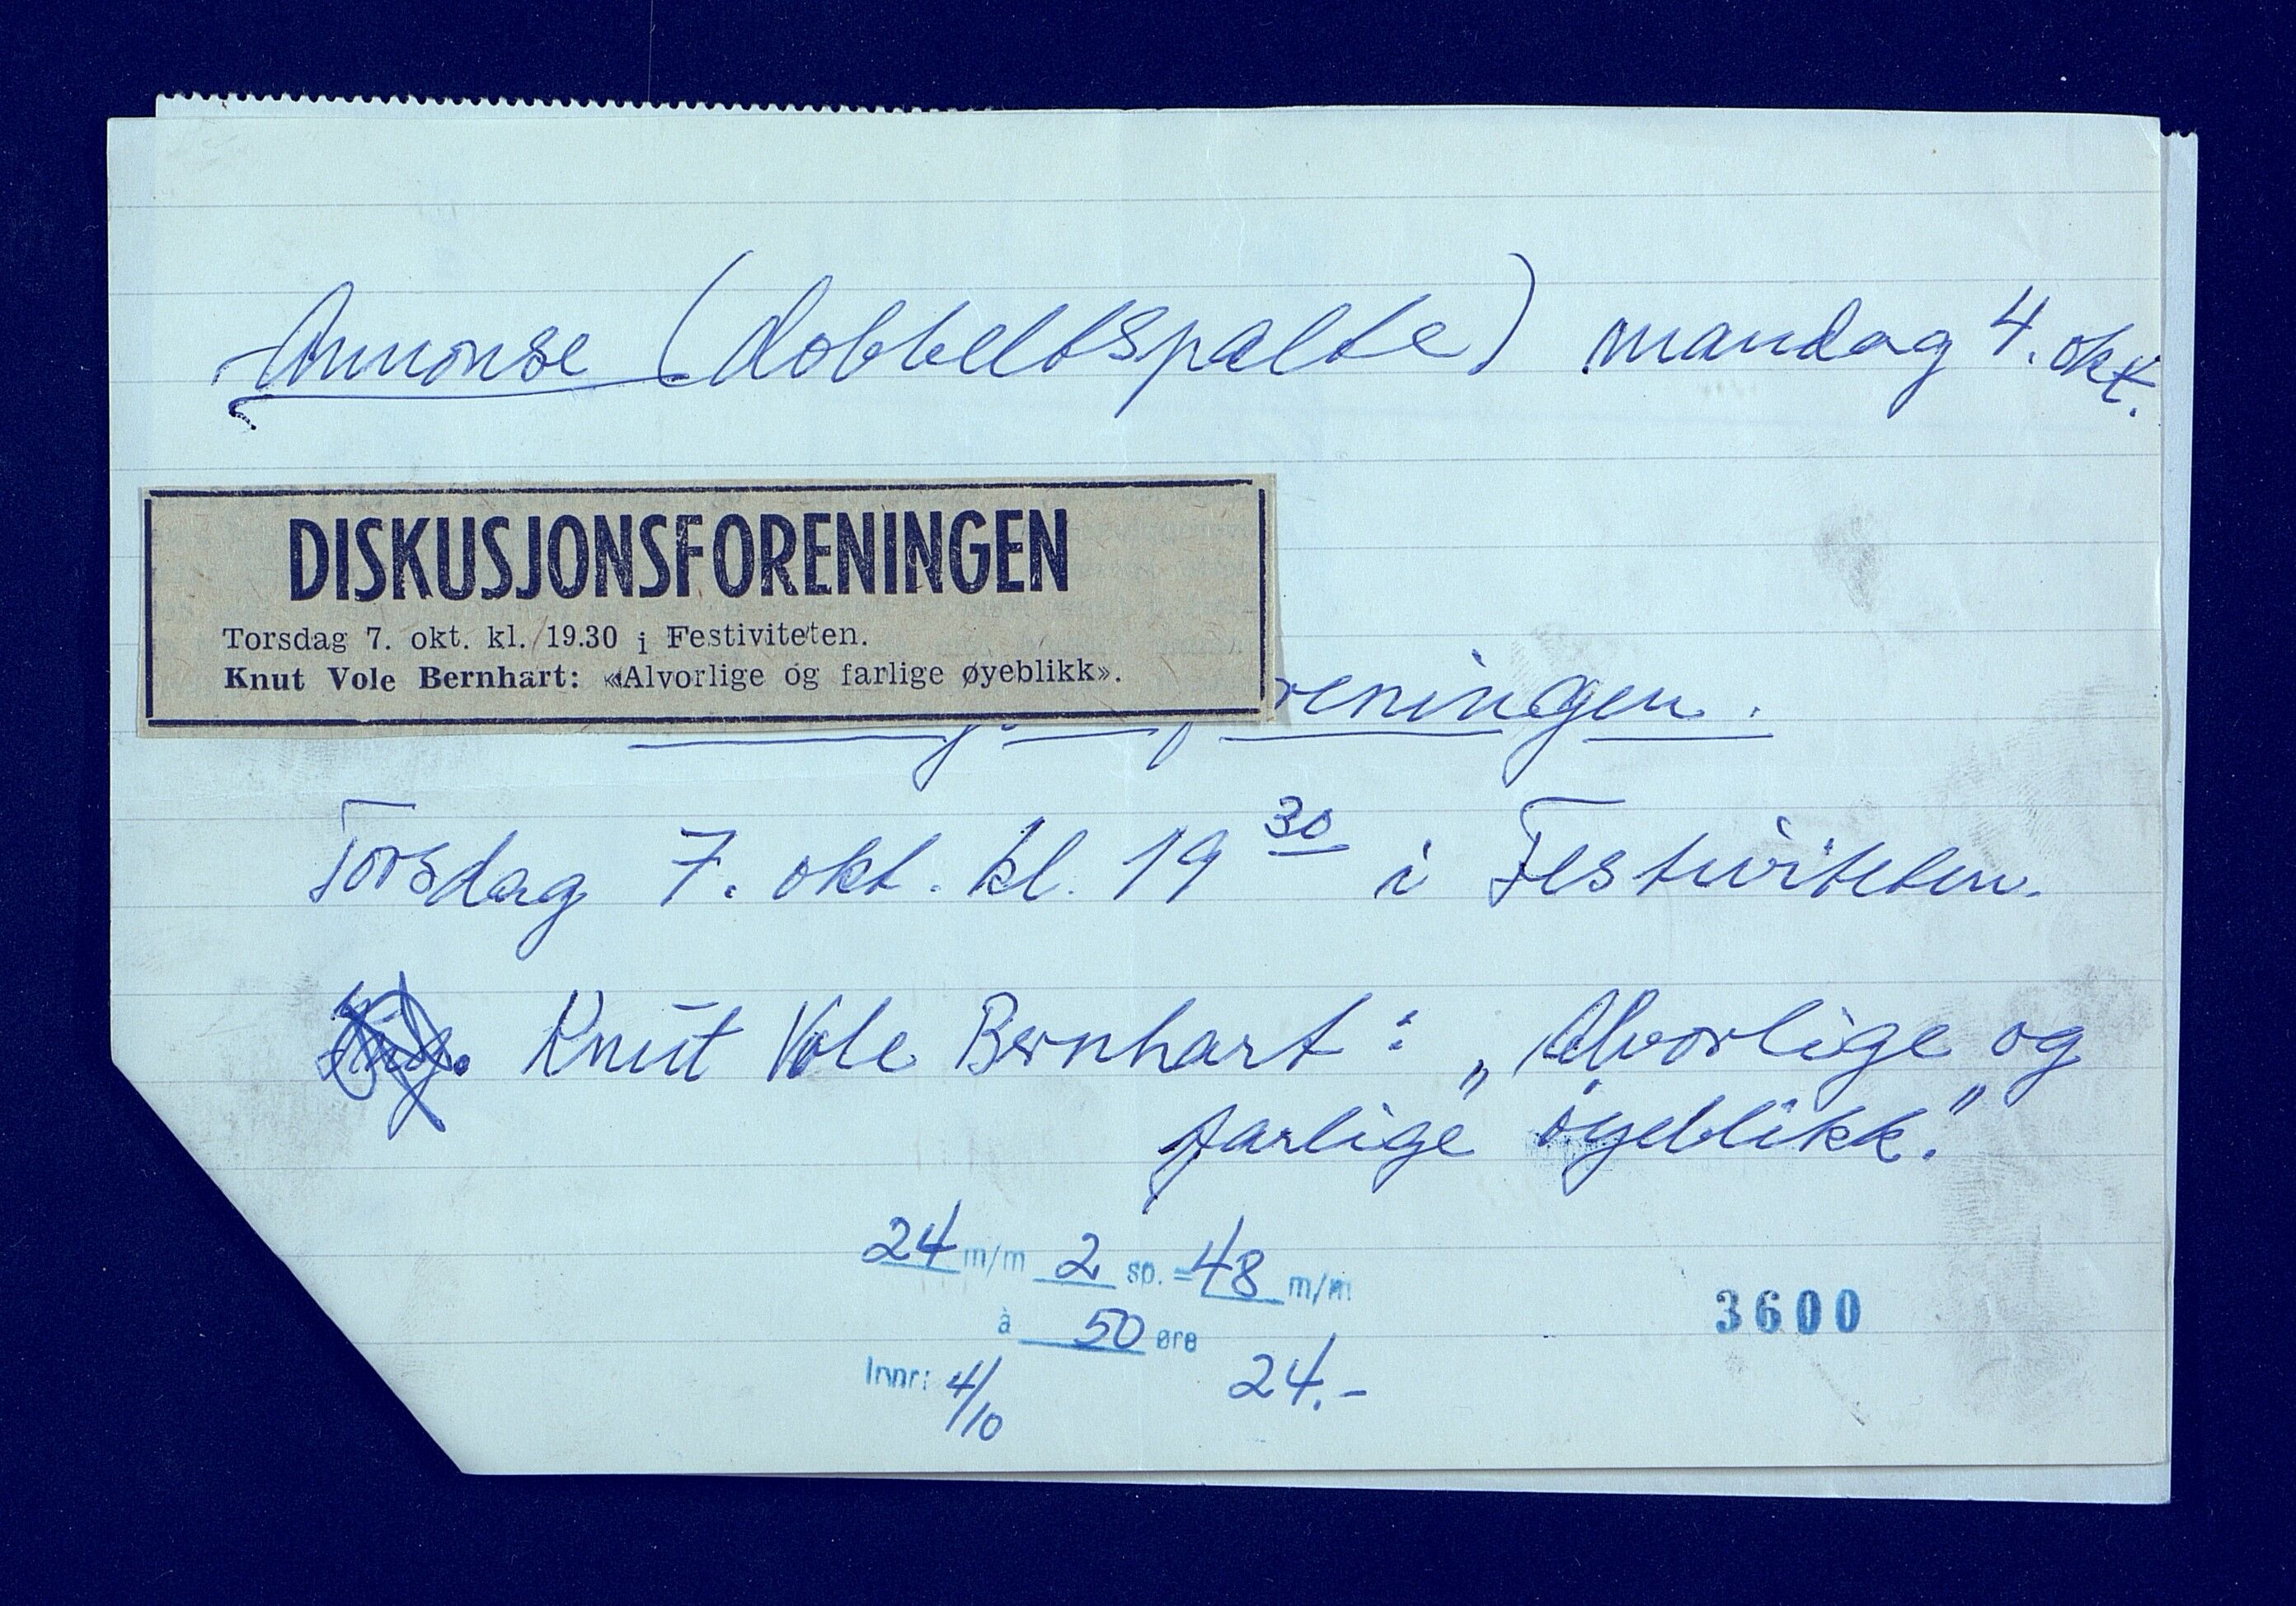 Annonse (dobbeltspalte) mandag 4. okt.
DISKUSJONSFORENINGEN
Torsdag 7. okt. kl. 19.30 i Festiviteten.
Knut Vole Bernhart: «Alvorlige og farlige øyeblikk».
reningen.
Torsdag 7. okt. kl. 19 30 i Festiviteten.
Knut Vole Bernhart: „Alvorlige og
farlige øyeblikk."
24 m/m 2 sp. = 48 m/m
à 50 øre
3600
Innr: 4/10 24.-